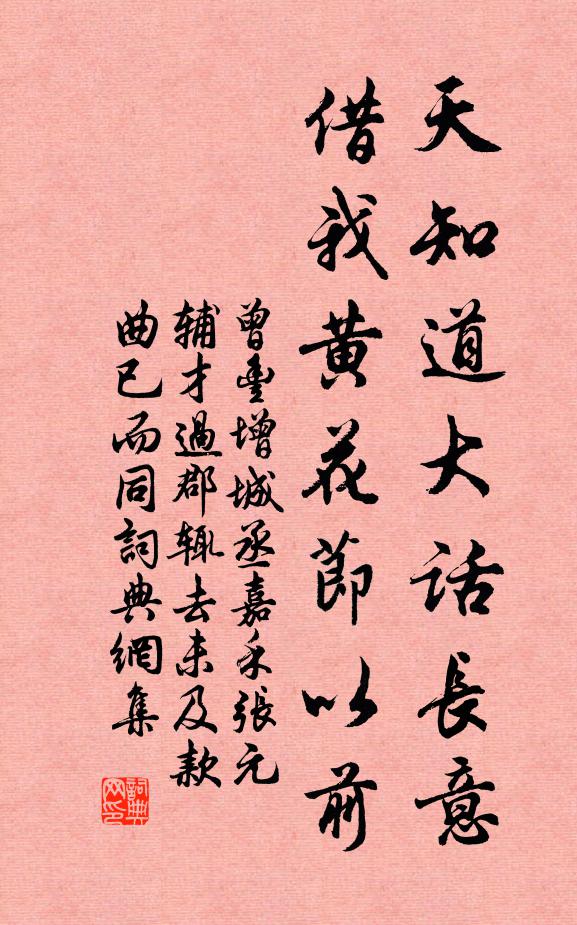 天知道大话長意
借我黄花節以前
曾豊增城丞嘉禾張元
辅才過郡辄去未及款
曲已而同詞典網集
詞典
网印